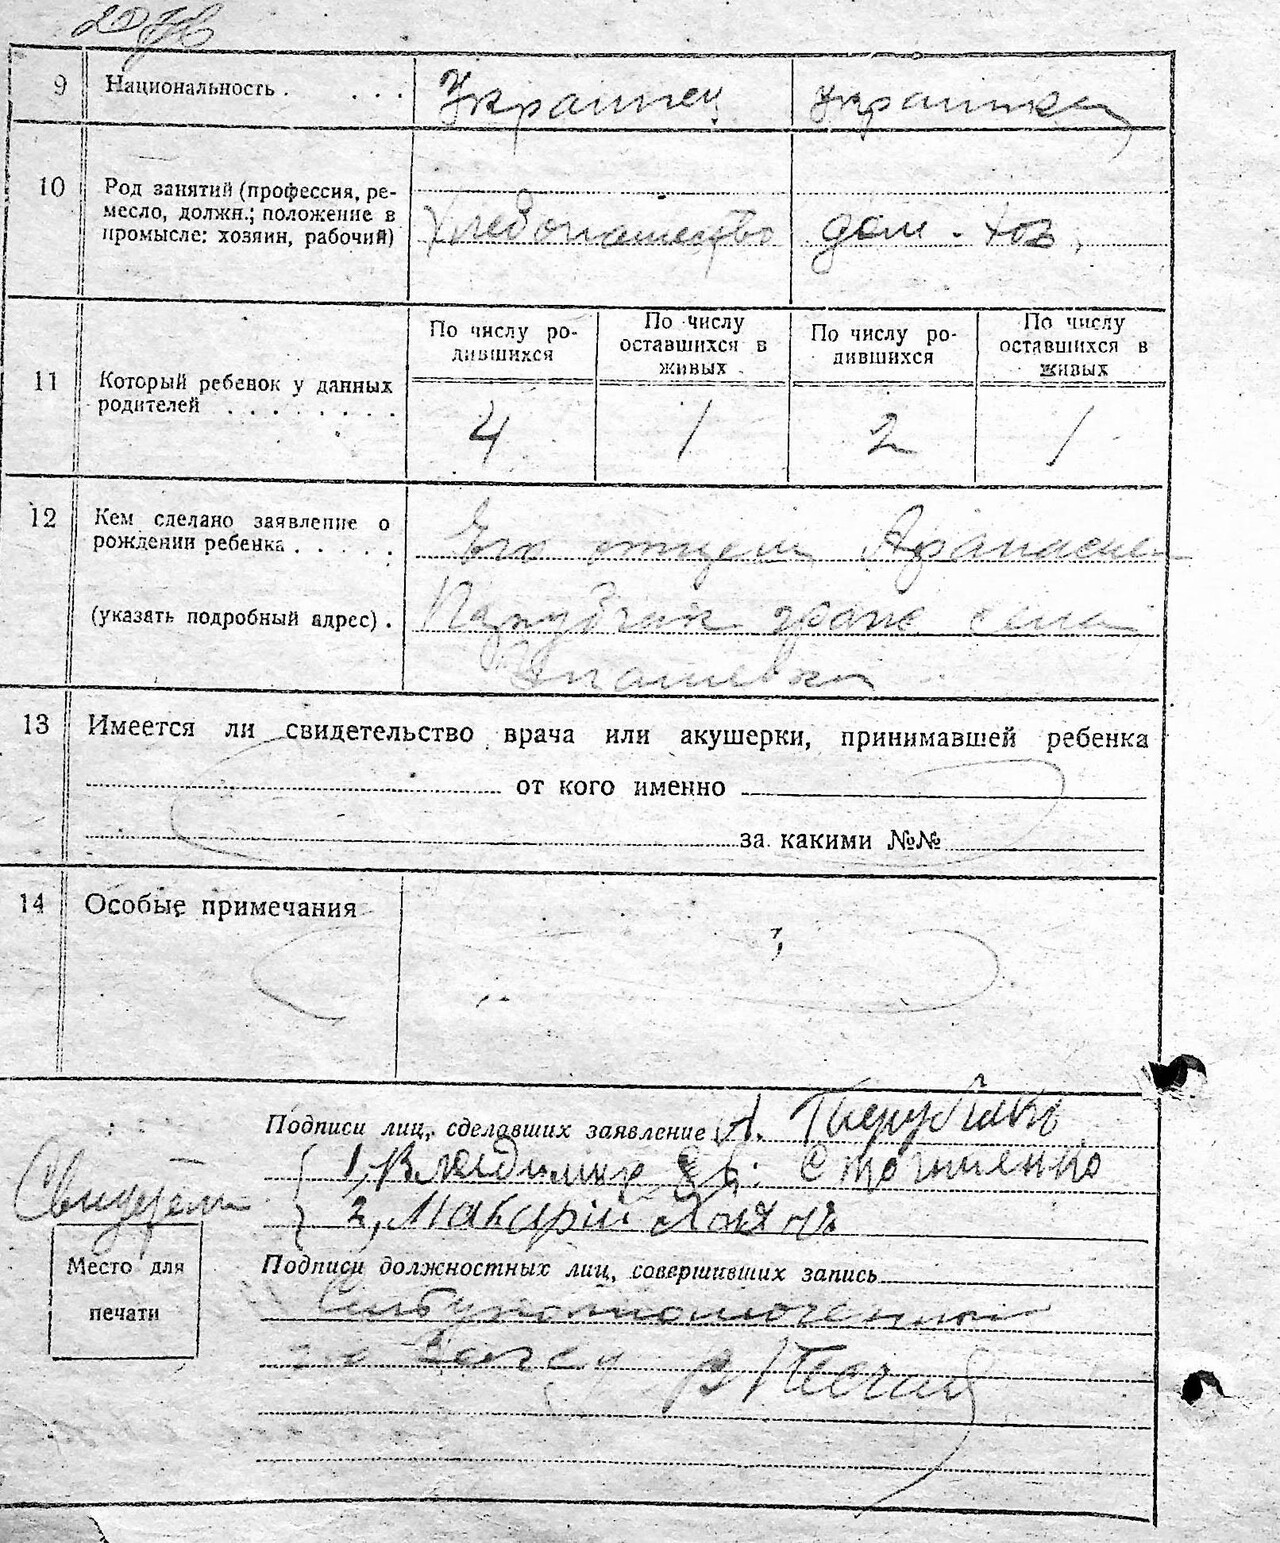 9 Национальность . . . . Украинец Украинка
10 Род занятий (профессия, ре-
месло, должн.; положение в
промысле: хозяин, рабочий) Хлебопашество дом. хоз.
По числу ро-
дившихся
По числу
оставшихся в
живых
По числу ро-
дившихся
По числу
оставшихся в
живых
11 Который ребенок у данных
родителей . . . . . . . . 4 1 2 1
12 Кем сделано заявление о
рождении ребенка . . . . . Его отцем Афанасием
(указать подробный адрес) . граж села
13 Имеется ли свидетельство врача или акушерки, принимавшей ребенка
от кого именно
за какими №№
14 Особые примечания
Подписи лиц, сделавших заявление А.
Свидетели 1, Владимир
2, Макарій
Место для
печати
Подписи должностных лиц, совершивших запись